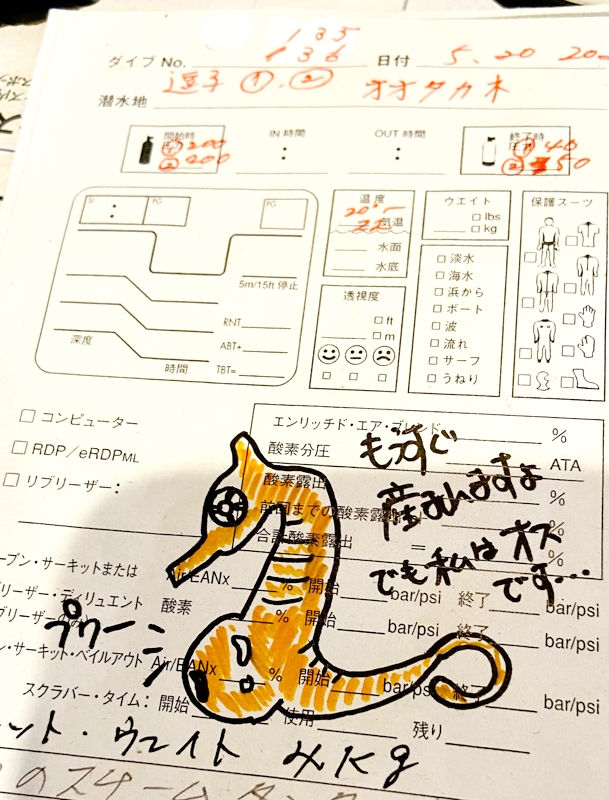 135
ダイブ No. 136 日付 5. 20 20
潜水地 逗子 ①.② オオタカ木
開始時 IN 時間 OUT 時間 終了時
① 200 : : ① 40
② 200 ② 50
温度 ウエイト 保護スーツ
20°
22 気温
水面
水底
lbs
kg
SI : PG PG
5m/15ft 停止
RNT
ABT+
TBT=
深度
時間
透視度
ft
m
淡水
海水
浜から
ボート
波
流れ
サーフ
うねり
コンピューター
RDP/eRDPML
リブリーザー:
エンリッチド・エア・ブレンド %
酸素分圧 ATA
酸素露出 %
前回までの酸素露出 %
合計酸素露出 = %
もうすぐ
産まれますよ
でも私はオス
です…
ープン・サーキットまたは Air/EANx % 開始 bar/psi 終了 bar/psi
ブリーザー・ディリュエント
ブリーザーのみ 酸素 % 開始 bar/psi 終了 bar/psi
ン・サーキット・ベイルアウト Air/EANx % 開始 bar/psi 終了 bar/psi
プクー
スクラバー・タイム: 開始 使用 残り
ット・ウェイト kg
のスチームタンク